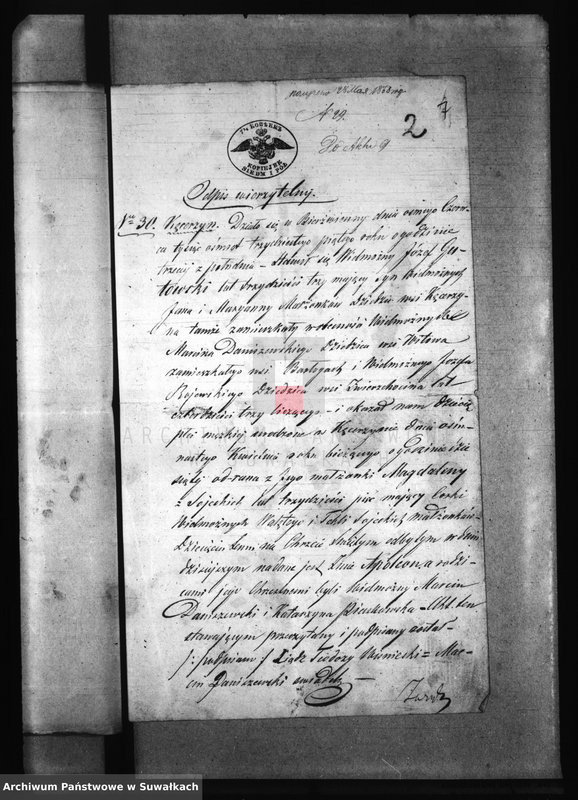 28 Мая 1853
N 29.
2
7
Do Aktu 9
7½ КОПѢЕКЪ
KOPIEJEK
SIEDM I PÓŁ
Odpis wierzytelny.
Nro 31. Kęcerzyn. Działo się w Bierżwienny dnia ósmego Czerw-
ca tysiąc ośmset trzydziestego piątego roku o godzinie
trzeciej z południa – Stawił się Widmożny Józef Gu-
towski lat trzydzieści trzy mający Syn Widmożnych
Jana i Maryanny Małżonków Dziedzic wsi Kęcerzy-
na tamże zamieszkały w obecności Widmożnych
Marcina Daniszewskiego Dziedzica wsi Witowa
zamieszkałego wsi i Widmożnego Józefa
Rojewskiego Dziedzica wsi Zwierzchocina lat
czterdzieści trzy liczącego – i okazał nam Dziecię
płci męzkiej urodzone w Kęcerzynie dnia ośm-
nastego Kwietnia roku bieżącego o godzinie
siątej od rana z Jego małżonki Magdaleny
z Sojeckich lat trzydzieści mający Córki
Widmożnych i Tekli Sojeckich małżonków –
Dziecięciu temu na Chrzcie Świętym odbytym w dniu
dzisiejszym nadane jest Imie Apoloni a rodzi-
cami jego Chrzestnemi byli Widmożny Marcin
Daniszewski i Katarzyna – Akt ten
stawającym przeczytany i podpisany został
/: podpisano :/ Xiądz Teodozy = Mar-
cin Daniszewski świadek –
Archiwum Państwowe w Suwałkach